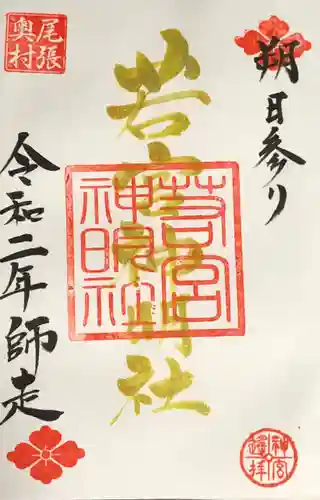 朔日参り
若宮神明社
若宮神明社
令和二年師走
尾張
奥村
神宮遥拝